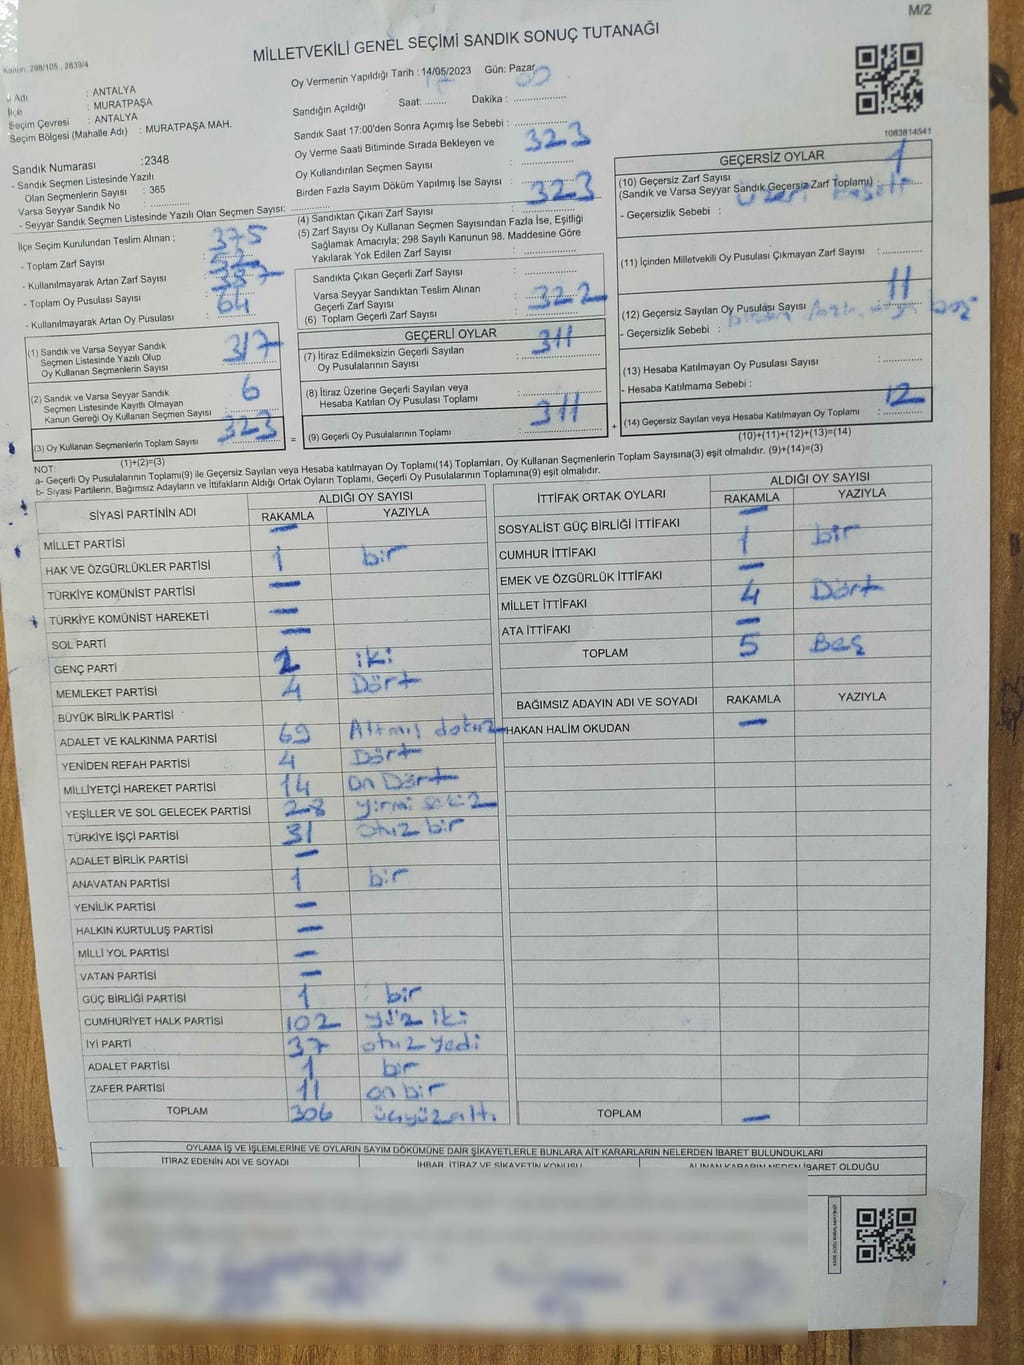 M/2
MİLLETVEKİLİ GENEL SEÇİMİ SANDIK SONUÇ TUTANAĞI
Kanun: 298/105 , 2839/4
İl Adı : ANTALYA
İlçe : MURATPAŞA
Seçim Çevresi : ANTALYA
Seçim Bölgesi (Mahalle Adı) : MURATPAŞA MAH.
Sandık Numarası :2348
- Sandık Seçmen Listesinde Yazılı
Olan Seçmenlerin Sayısı : 365
Varsa Seyyar Sandık No :
- Seyyar Sandık Seçmen Listesinde Yazılı Olan Seçmen Sayısı:
İlçe Seçim Kurulundan Teslim Alınan ;
- Toplam Zarf Sayısı : 375
- Kullanılmayarak Artan Zarf Sayısı :
- Toplam Oy Pusulası Sayısı :
- Kullanılmayarak Artan Oy Pusulası : 64
(1) Sandık ve Varsa Seyyar Sandık
Seçmen Listesinde Yazılı Olup
Oy Kullanan Seçmenlerin Sayısı : 317
(2) Sandık ve Varsa Seyyar Sandık
Seçmen Listesinde Kayıtlı Olmayan
Kanun Gereği Oy Kullanan Seçmen Sayısı : 6
(3) Oy Kullanan Seçmenlerin Toplam Sayısı : 323
(1)+(2)=(3)
Oy Vermenin Yapıldığı Tarih : 14/05/2023 Gün: Pazar
Sandığın Açıldığı Saat: 17 Dakika : 00
Sandık Saat 17:00'den Sonra Açımış İse Sebebi :
Oy Verme Saati Bitiminde Sırada Bekleyen ve
Oy Kullandırılan Seçmen Sayısı : 323
Birden Fazla Sayım Döküm Yapılmış İse Sayısı :
(4) Sandıktan Çıkan Zarf Sayısı : 323
(5) Zarf Sayısı Oy Kullanan Seçmen Sayısından Fazla İse, Eşitliği
Sağlamak Amacıyla; 298 Sayılı Kanunun 98. Maddesine Göre
Yakılarak Yok Edilen Zarf Sayısı :
Sandıkta Çıkan Geçerli Zarf Sayısı :
Varsa Seyyar Sandıktan Teslim Alınan
Geçerli Zarf Sayısı :
(6) Toplam Geçerli Zarf Sayısı : 322
GEÇERLİ OYLAR
(7) İtiraz Edilmeksizin Geçerli Sayılan
Oy Pusulalarının Sayısı : 311
(8) İtiraz Üzerine Geçerli Sayılan veya
Hesaba Katılan Oy Pusulası Toplamı :
= (9) Geçerli Oy Pusulalarının Toplamı : 311 +
1083814541
GEÇERSİZ OYLAR
(10) Geçersiz Zarf Sayısı 1
(Sandık ve Varsa Seyyar Sandık Geçersiz Zarf Toplamı) :
- Geçersizlik Sebebi : üzeri
(11) İçinden Milletvekili Oy Pusulası Çıkmayan Zarf Sayısı :
(12) Geçersiz Sayılan Oy Pusulası Sayısı : 11
- Geçersizlik Sebebi :
(13) Hesaba Katılmayan Oy Pusulası Sayısı :
- Hesaba Katılmama Sebebi :
(14) Geçersiz Sayılan veya Hesaba Katılmayan Oy Toplamı : 12
(10)+(11)+(12)+(13)=(14)
NOT:
a- Geçerli Oy Pusulalarının Toplamı(9) ile Geçersiz Sayılan veya Hesaba katılmayan Oy Toplamı(14) Toplamları, Oy Kullanan Seçmenlerin Toplam Sayısına(3) eşit olmalıdır. (9)+(14)=(3)
b- Siyasi Partilerin, Bağımsız Adayların ve İttifakların Aldığı Ortak Oyların Toplamı, Geçerli Oy Pusulalarının Toplamına(9) eşit olmalıdır.
SİYASİ PARTİNİN ADI ALDIĞI OY SAYISI
RAKAMLA YAZIYLA
MİLLET PARTİSİ —
HAK VE ÖZGÜRLÜKLER PARTİSİ 1 bir
TÜRKİYE KOMÜNİST PARTİSİ —
TÜRKİYE KOMÜNİST HAREKETİ —
SOL PARTİ —
GENÇ PARTİ 2 iki
MEMLEKET PARTİSİ 4 Dört
BÜYÜK BİRLİK PARTİSİ
ADALET VE KALKINMA PARTİSİ 69 Altmış dokuz
YENİDEN REFAH PARTİSİ 4 Dört
MİLLİYETÇİ HAREKET PARTİSİ 14 on Dört
YEŞİLLER VE SOL GELECEK PARTİSİ 28 yirmi sekiz
TÜRKİYE İŞÇİ PARTİSİ 31 otuz bir
ADALET BİRLİK PARTİSİ —
ANAVATAN PARTİSİ 1 bir
YENİLİK PARTİSİ —
HALKIN KURTULUŞ PARTİSİ —
MİLLİ YOL PARTİSİ —
VATAN PARTİSİ —
GÜÇ BİRLİĞİ PARTİSİ 1 bir
CUMHURİYET HALK PARTİSİ 102 yüz iki
İYİ PARTİ 37 otuz yedi
ADALET PARTİSİ 1 bir
ZAFER PARTİSİ 11 on bir
TOPLAM 306 üçyüzaltı
İTTİFAK ORTAK OYLARI ALDIĞI OY SAYISI
RAKAMLA YAZIYLA
SOSYALİST GÜÇ BİRLİĞİ İTTİFAKI —
CUMHUR İTTİFAKI 1 bir
EMEK VE ÖZGÜRLÜK İTTİFAKI —
MİLLET İTTİFAKI 4 Dört
ATA İTTİFAKI —
TOPLAM 5 Beş
BAĞIMSIZ ADAYIN ADI VE SOYADI RAKAMLA YAZIYLA
HAKAN HALİM OKUDAN —
TOPLAM —
OYLAMA İŞ VE İŞLEMLERİNE VE OYLARIN SAYIM DÖKÜMÜNE DAİR ŞİKAYETLERLE BUNLARA AİT KARARLARIN NELERDEN İBARET BULUNDUKLARI
İTİRAZ EDENİN ADI VE SOYADI İHBAR, İTİRAZ VE ŞİKAYETİN KONUSU ALINAN KARARIN NEDEN İBARET OLDUĞU